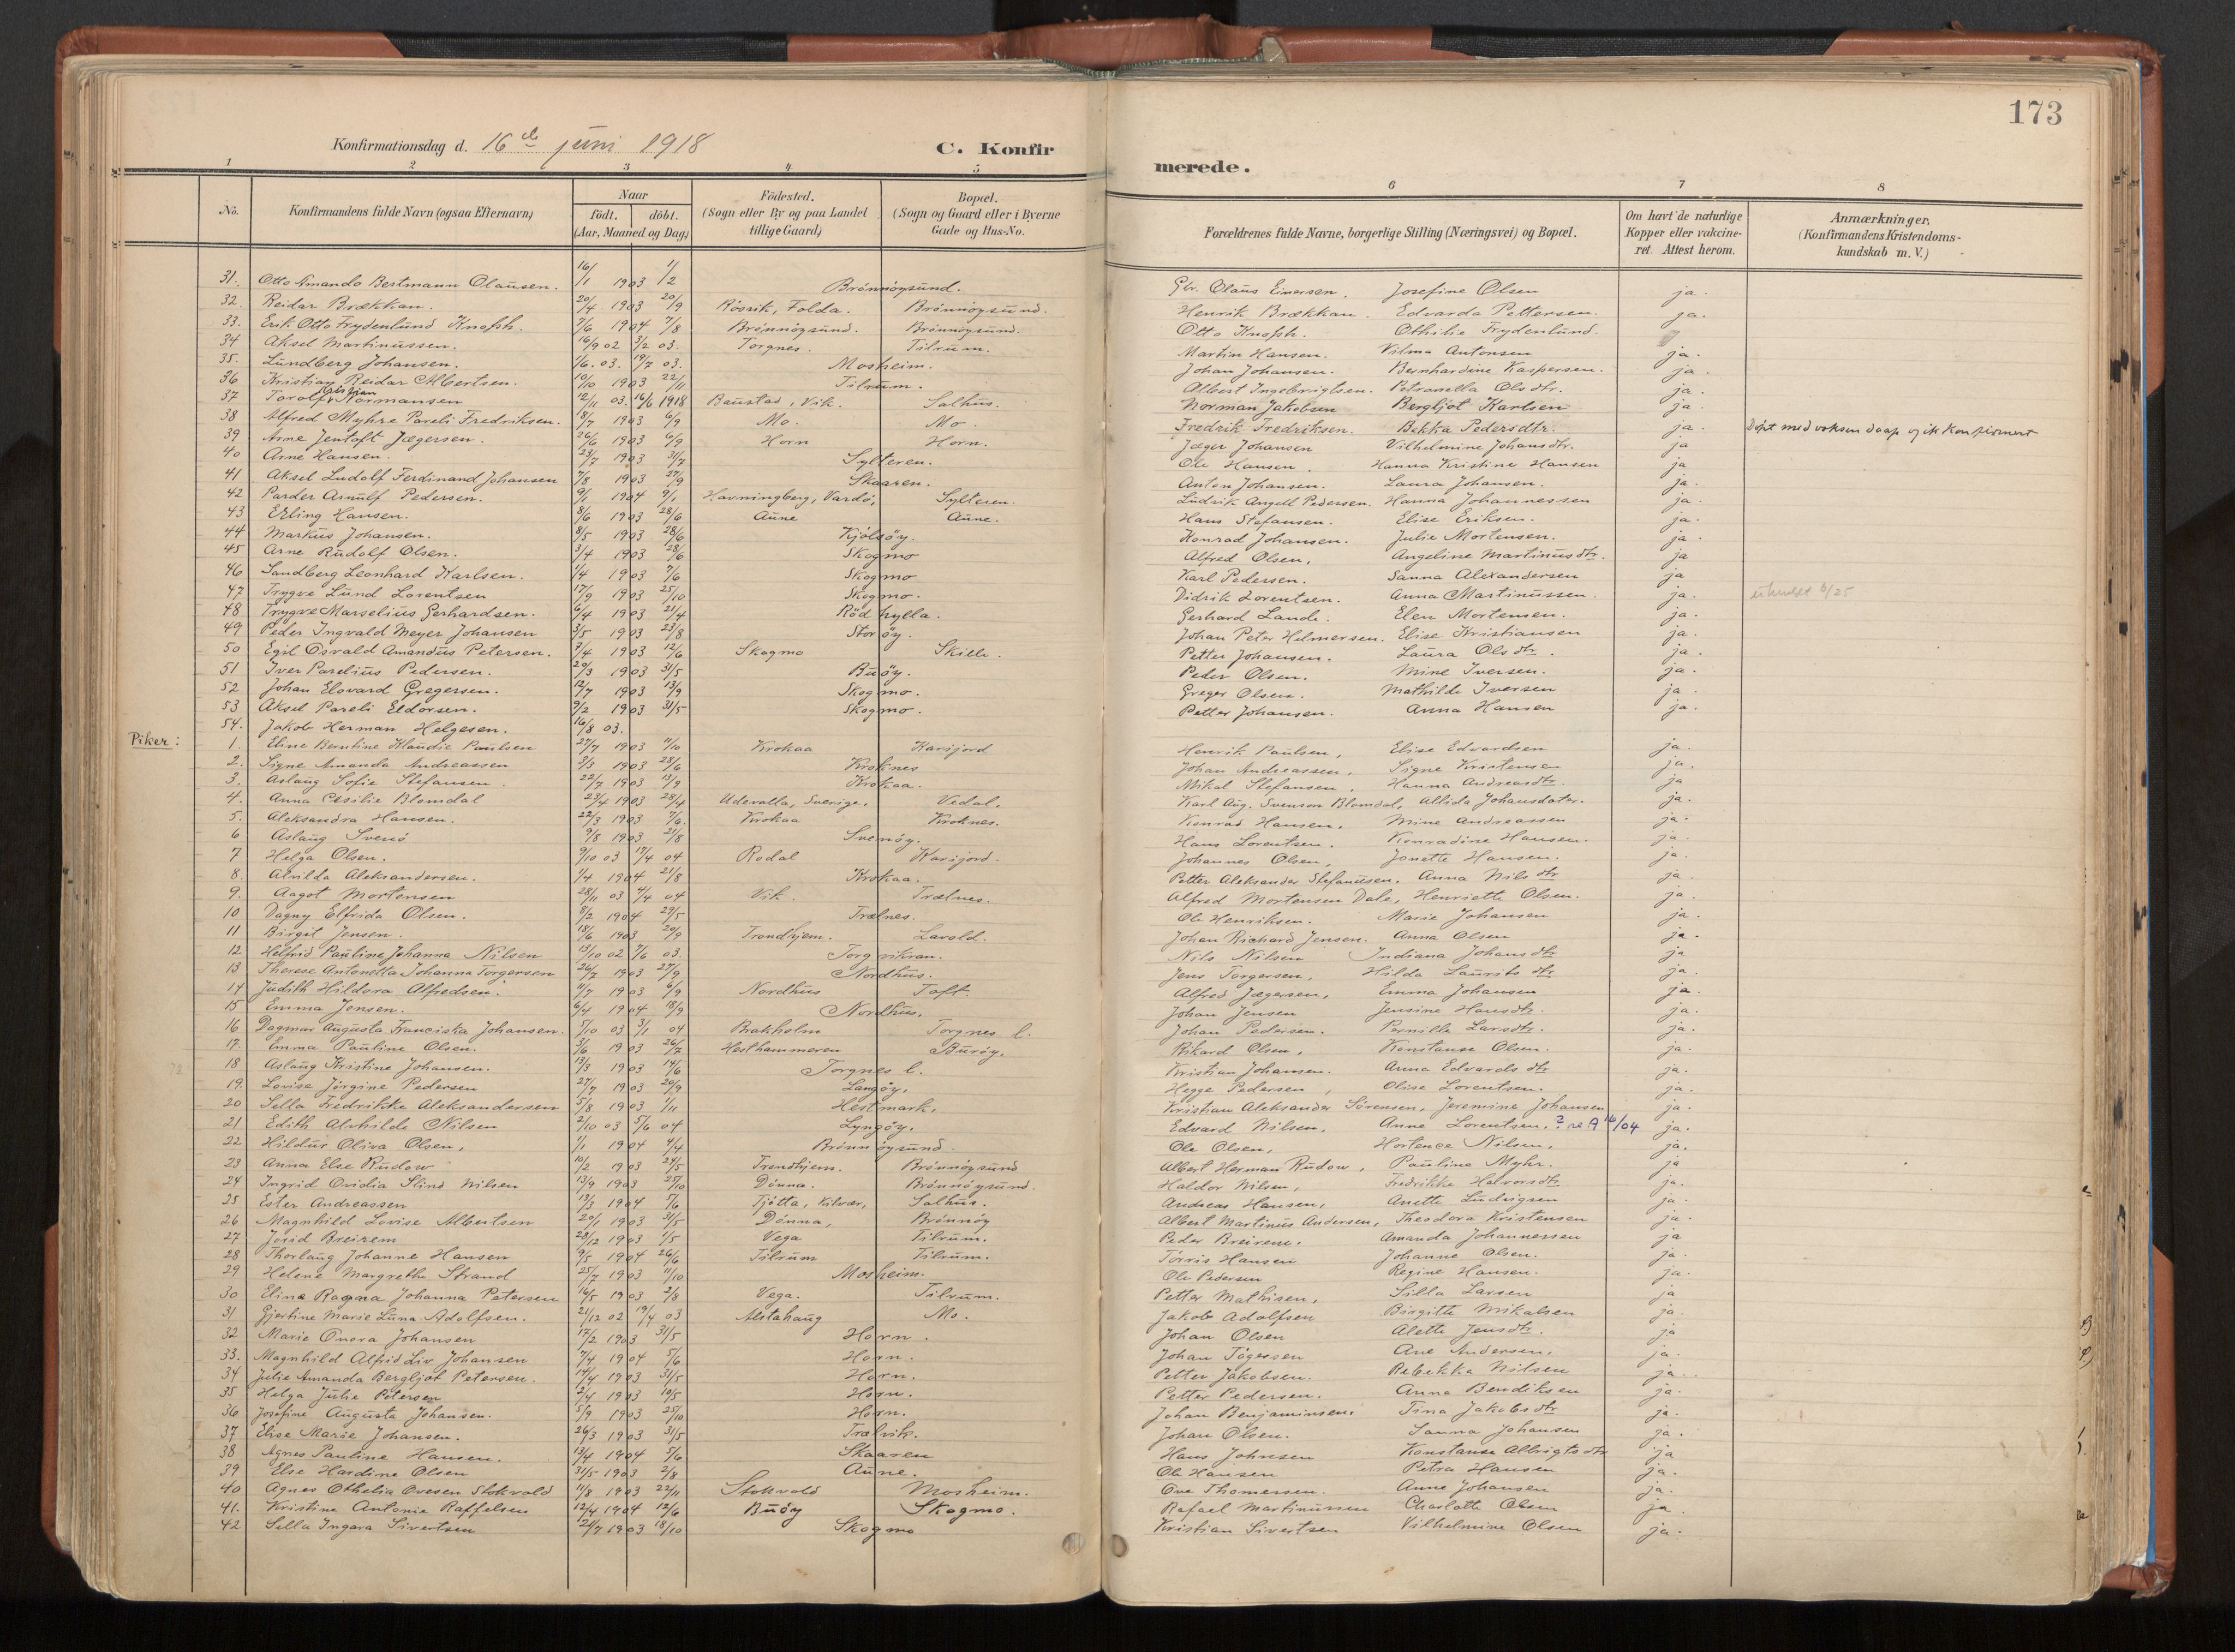 173
Konfirmationsdag d. 16de juni 1918
C. Konfirmerede.
1 2 3 4 5 6 7 8
No. Konfirmandens fulde Navn (ogsaa Efternavn) Naar födt. döbt. (Aar, Maaned og Dag) Födested. (Sogn eller By og paa Landet tillige Gaard) Bopæl. (Sogn og Gaard eller i Byerne Gade og Hus-No. Forældrenes fulde Navne, borgerlige Stilling (Næringsvei) og Bopæl. Om havt de naturlige Kopper eller vakcineret. Attest herom. Anmærkninger. (Konfirmandens Kristendomskundskab m. V.)
31. Otto Amando Bertmann Olausen. 16/1 1903 1/2 Brönnöysund. Olaus Einersen, Josefine Olsen ja.
32. Reidar Brækkan. 20/4 1903 20/9 Rösvik, Folda. Brönnöysund. Henrik Brækkan. Edvarda Pettersen. ja.
33. Erik Otto Frydenlund Knoph. 7/6 1904 7/8 Brönnöysund. Brönnöysund. Otto Knoph. Othilie Frydenlund.
34 Aksel Martinussen. 16/9 02 3/2 03. Torgnes. Tilrum. Martin Hansen. Vilma Antonsen ja.
35. Lundberg Johansen. 1/6. 03. 19/7 03. Mosheim. Johan Johansen. Bernhardine Kaspersen. ja.
36 Kristian Reidar Albertsen. 10/10 1903 22/11 Tilrum. Albert Ingebrigtsen. Petronella Olsdtr. ja.
37 Torolf Normansen 12/11 03. 16/6 1918 Baustad, Vik. Salhus. Norman Jakobsen Bergljot Karlsen ja.
38 Alfred Myhre Pareli Fredriksen. 18/7 1903 6/9 Mo. Mo. Fredrik Fredriksen. Bekka Pedersdtr. ja. Döpt med voksen daap og ik konfirmert
39 Arne Jentoft Jægersen. 26/6 1903 6/9 Horn Horn. Jæger Johansen Vilhelmine Johansdtr. ja
40 Arne Hansen. 23/7 1903 31/7 Sylteren. Ole Hansen. Hanna Kristine Hansen ja
41 Aksel Ludolf Ferdinand Johansen 7/8 1903 27/9 Skaaren. Anton Johansen. Laura Johansen. ja.
42 Parder Arnulf Pedersen. 9/1 1904 9/1 Havningberg, Vardö, Sylteren. Ludvik Angell Pedersen. Hanna Johannessen ja.
43 Erling Hansen. 8/6 1903 28/6 Aune Aune. Hans Stefansen. Elise Eriksen. ja.
44 Markus Johansen. 8/5 1903 28/6 Kjölsöy. Konrad Johansen. Julie Mortensen. ja.
45 Arne Rudolf Olsen. 3/4 1903 28/6 Skogmo Alfred Olsen, Angeline Martinusdtr. ja
46 Sandberg Leonhard Karlsen. 1/4 1903 7/6 Skogmo Karl Pedersen. Sanna Alexandersen ja
47 Trygve Lund Lorentsen 17/9 1903 25/10 Skogmo. Didrik Lorentsen. Anna Martinussen. ja.
48 Trygve Marselius Gerhardsen. 6/4 1903 21/4 Rödhylla. Gerhard Lande. Elen Mortensen. ja.
49 Peder Ingvald Meyer Johansen 3/5 1903 23/8 Storöy. Johan Peter Helmersen. Elise Kristiansen ja.
50 Egil Osvald Amandus Petersen. 3/4 1903 12/6 Skogmo Skille. Petter Johansen. Laura Olsdtr. ja.
51 Iver Parelius Pedersen. 20/3 1903 31/5 Buöy. Peder Olsen. Mine Iversen. ja.
52 Johan Edvard Gregersen. 12/7 1903 13/9 Skogmo. Greger Olsen. Mathilde Iversen ja.
53 Aksel Pareli Eldorsen. 9/2 1903 31/5 Skogmo. Petter Johansen. Anna Hansen ja.
54. Jakob Herman Helgesen. 16/8 03.
Piker:
1. Eline Berntine Klaudie Paulsen 27/7 1903 11/10 Krokaa Karijord Henrik Paulsen, Elise Edvardsen ja.
2. Signe Amanda Andreassen 3/3 1903 28/6 Kroknes Johan Andreassen, Signe Kristensen ja.
3. Aslaug Sofie Stefansen 22/7 1903 13/9 Krokaa. Mikal Stefansen, Hanna Andreasdtr. ja
4. Anna Cesilie Blomdal 23/4 1903 28/4 Udevalla, Sverige. Vedal. Karl Aug. Svenson Blomdal, Altida Johansdater. ja.
5. Aleksandra Hansen. 22/3 1903 7/6. Krokaa Kroknes. Konrad Hansen, Mine Andreassen ja.
6 Aslaug Svenö 9/8 1903 21/8 Svenöy. Hans Lorentsen. Konradine Hansen. ja.
7 Helga Olsen. 9/10 03 17/4 04 Rodal Karijord. Johannes Olsen, Jonette Hansen. ja.
8. Alvilda Aleksandersen. 1/4 1904 21/8 Krokaa. Petter Aleksander Stefansen. Anna Nilsdtr ja.
9. Aagot Mortensen 28/11 03 4/4 04 Vik. Trælnes. Alfred Mortensen Dale, Henriette Olsen. ja.
10 Dagny Elfrida Olsen. 8/2 1904 29/5 Trælnes. Ole Henriksen. Marie Johansen ja.
11 Birgit Jensen. 18/6 1903 20/9 Trondhjem. Lavold. Johan Richard Jensen. Anna Olsen ja.
12 Helfrid Pauline Johanna Nilsen 13/10 02 7/6 03. Torgvikran. Nils Nilsen Indiana Johansdtr ja
13 Therese Antonetta Johanna Torgersen 26/7 1903 27/9 Nordhus. Jens Torgersen, Hilda Lauritsdtr ja.
14 Judith Hildora Alfredsen. 11/7 1903 6/9 Nordhus Toft. Alfred Jægersen, Emma Johansen ja.
15 Emma Jensen. 6/4 1904 18/9 Nordhus. Johan Jensen Jensine Hansdtr. ja.
16 Dagmar Augusta Franciska Johansen. 5/10 03 3/1 04 Brakholm Torgnes l. Johan Pedersen. Pernille Larsdtr. ja.
17. Emma Pauline Olsen. 3/6 1903 26/7 Hesthammeren Buröy. Rikard Olsen, Konstanse Olsen. ja.
18 Aslaug Kristine Johansen. 13/3 1903 14/6 Torgnes l. Kristian Johansen. Anna Edvardsdtr ja.
19. Lovise Jörgine Pedersen 27/7 1903 20/9 Langöy. Hegge Pedersen, Olise Lorentsen. ja.
20 Sella Fredrikke Aleksandersen 5/8 1903 1/11 Hestmark. Kristian Aleksander Sörensen, Jeremine Johansen ja.
21 Edith Alvhilde Nilsen 2/10 03 5/6 04 Lyngöy. Edvard Nilsen, Anne Lorentsen. ? ja.
22 Hildur Oliva Olsen, 1/1 1904 4/4 Brönnöysund. Ole Olsen, Hortence Nilsen, ja.
23 Anna Else Rudow 10/2 1903 24/5 Trondhjem. Brönnöysund Albert Herman Rudow, Pauline Myhr. ja
24 Ingrid Ovidia Slind Nilsen 13/9 1903 25/10 Dönna. Brönnöysund. Haldor Nilsen, Fredrikke Halvorsdtr ja.
25 Ester Andreassen 13/3 1904 5/6 Tjötta, Kilvær, Salhus. Andreas Hansen, Anette Ludvigsen ja.
26 Magnhild Lovise Albertsen 20/1 1903 31/5 Dönna, Brönnöy Albert Martinus Andersen, Theodora Kristensen ja.
27 Jorid Breirem 28/12 1903 1/5 Vega Tilrum. Peder Breirem. Amanda Johannessen ja
28 Thorlaug Johanne Hansen 9/5 1904 26/6 Tilrum Tilrum. Törris Hansen Johanne Olsen. ja.
29 Helene Margrethe Strand 25/7 1903 11/10 Mosheim. Ole Pedersen Regine Hansen. ja.
30 Elina Ragna Johanna Petersen 16/5 1903 2/8 Vega. Tilrum. Petter Mathisen, Silla Larsen ja
31 Gjertine Marie Luna Adolfsen. 21/12 02 19/4 03 Alstahaug Mo. Jakob Adolfsen Birgitte Mikalsen ja.
32 Marie Onora Johansen 17/2 1903 31/5 Horn. Johan Olsen Alette Jensdtr. ja
33. Magnhild Alfrid Liv Johansen 7/4 1904 5/6 Horn. Johan Tögersen Ane Andersen, ja.
34 Julie Amanda Bergljot Petersen. 14/4 1903 31/5 Horn. Petter Jakobsen. Rebekka Nilsen ja.
35 Helga Julie Petersen 2/4 1903 10/5 Horn. Petter Pedersen. Anna Bendiksen ja.
36 Josefine Augusta Johansen. 5/9 1903 25/10 Horn. Johan Benjaminsen. Tina Jakobsdtr ja.
37 Elise Marie Johansen. 26/3 1903 31/5 Trælvik. Johan Olsen. Sanna Johansen ja.
38 Agnes Pauline Hansen. 13/4 1904 5/6 Skaaren Hans Johnsen Konstanse Albrigtsdtr ja
39 Else Hardine Olsen 31/5 1903 2/8 Aune. Ole Hansen Petra Hansen ja.
40 Agnes Othelia Ovesen Stokvold 11/8 1903 22/11 Stokvold Mosheim. Ove Thomassen. Anne Johansen ja.
41. Kristine Antonie Raffelsen 12/4 1904 12/6 Buöy Skogmo. Rafael Martinussen Charlotte Olsen ja
42 Sella Ingara Sivertsen 24/7 1903 18/10 Skogmo Kristian Sivertsen Vilhelmine Olsen ja.